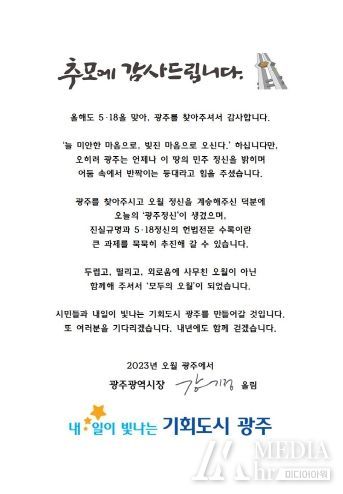 추모에 감사드립니다.
올해도 5·18을 맞아, 광주를 찾아주셔서 감사합니다.
'늘 미안한 마음으로, 빚진 마음으로 오신다.' 하십니다만,
오히려 광주는 언제나 이 땅의 민주 정신을 밝히며
어둠 속에서 반짝이는 등대라고 힘을 주셨습니다.
광주를 찾아주시고 오월 정신을 계승해주신 덕분에
오늘의 '광주정신'이 생겼으며,
진실규명과 5·18정신의 헌법전문 수록이란
큰 과제를 묵묵히 추진해 갈 수 있습니다.
두렵고, 떨리고, 외로움에 사무친 오월이 아닌
함께해 주셔서 '모두의 오월'이 되었습니다.
시민들과 내일이 빛나는 기회도시 광주를 만들어갈 것입니다.
또 여러분을 기다리겠습니다. 내년에도 함께 걷겠습니다.
2023년 오월 광주에서
광주광역시장 강기정 올림
내★일이 빛나는 기회도시 광주
MEDIA
hr
미디어아워